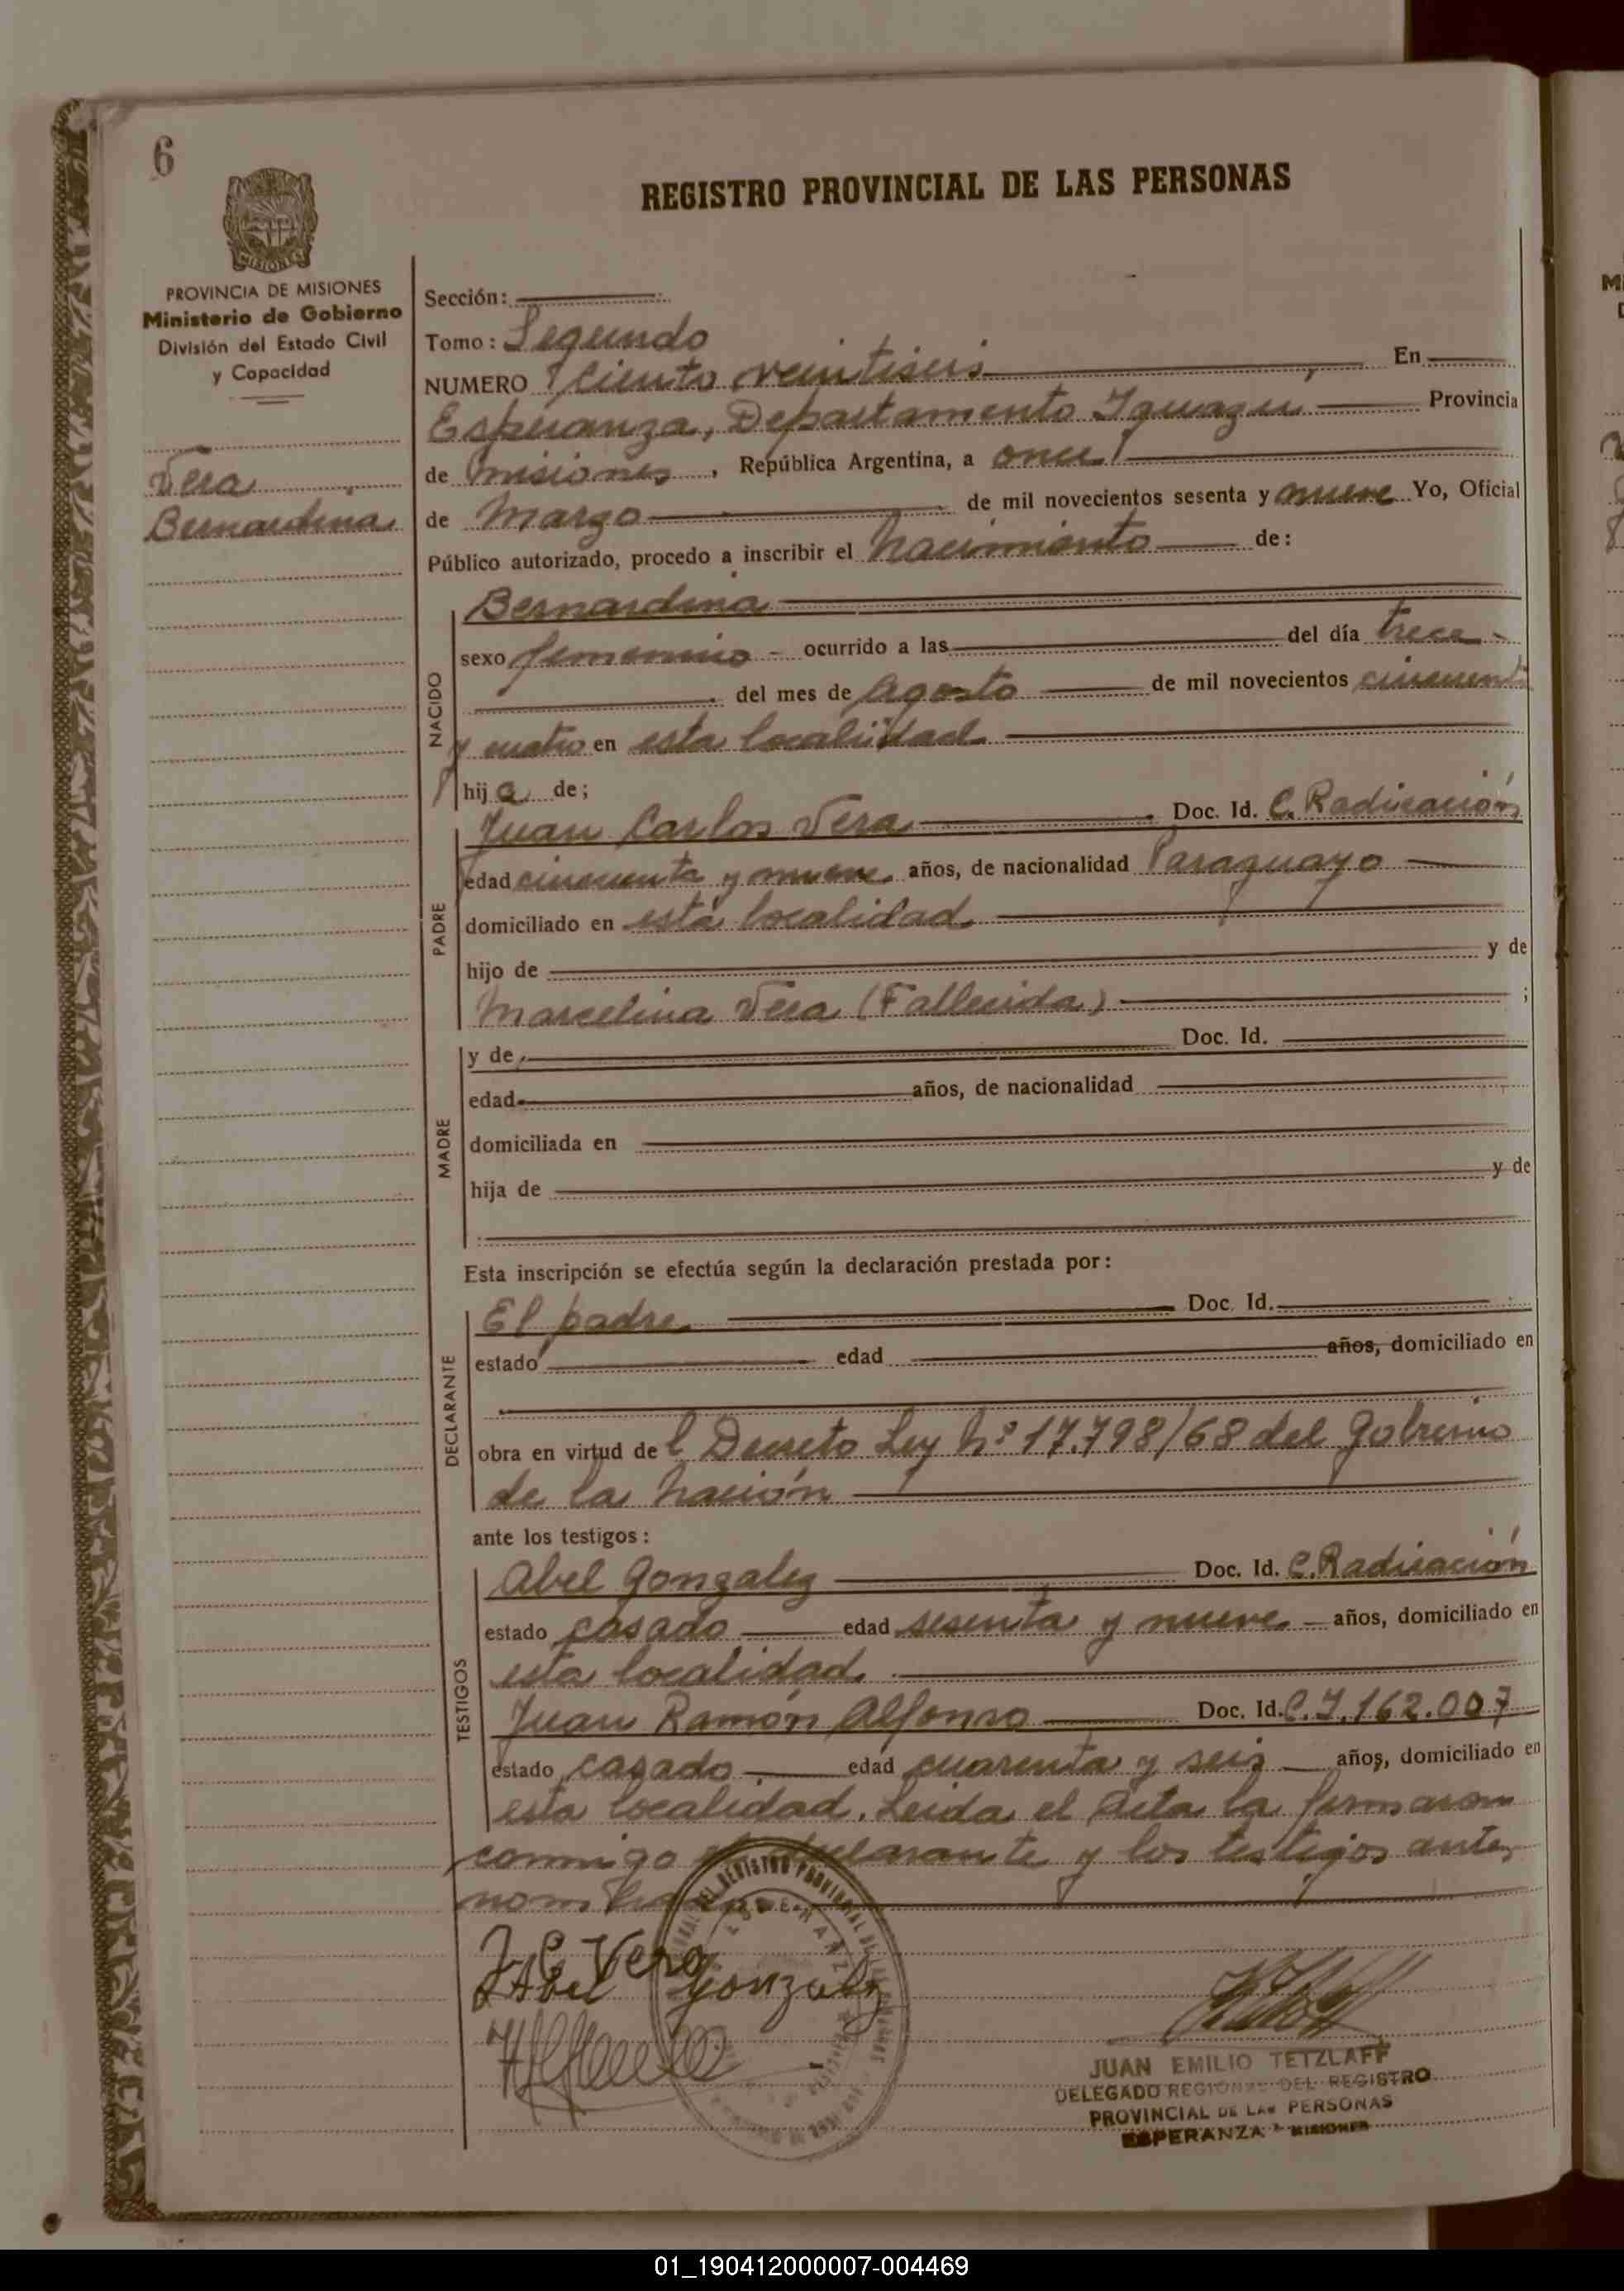 6
REGISTRO PROVINCIAL DE LAS PERSONAS
MISIONES
PROVINCIA DE MISIONES
Ministerio de Gobierno
División del Estado Civil
y Capacidad
Vera
Bernardina
Sección:
Tomo: Segundo
NUMERO Ciento veintiseis En
Esperanza, Departamento Iguazu Provincia
de Misiones, República Argentina, a once
de Marzo de mil novecientos sesenta y nueve Yo, Oficial
Público autorizado, procedo a inscribir el Nacimiento de:
NACIDO
Bernardina
sexo femenino ocurrido a las del día trece
del mes de Agosto de mil novecientos cincuenta
y cuatro en esta localidad
hija de;
PADRE
Juan Carlos Vera Doc. Id. C. Radicación
edad cincuenta y nueve años, de nacionalidad Paraguayo
domiciliado en esta localidad
hijo de y de
Marcelina Vera (Fallecida) ;
MADRE
y de Doc. Id.
edad años, de nacionalidad
domiciliada en
hija de y de
Esta inscripción se efectúa según la declaración prestada por:
DECLARANTE
El padre Doc. Id.
estado edad años, domiciliado en
obra en virtud de l Decreto Ley Nº 17.798/68 del Gobierno
de la Nación
ante los testigos:
TESTIGOS
Abel Gonzalez Doc. Id. C. Radicación
estado casado edad sesenta y nueve años, domiciliado en
esta localidad.
Juan Ramón Alfonso Doc. Id. C.I. 162.007
estado casado edad cuarenta y seis años, domiciliado en
esta localidad. Leida el Acta la firmaron
conmigo el declarante y los testigos ante
nombrados
J C Vera
Abel Gonzalez
JUAN EMILIO TETZLAFF
DELEGADO REGIONAL DEL REGISTRO
PROVINCIAL DE LAS PERSONAS
ESPERANZA - MISIONES
01_190412000007-004469